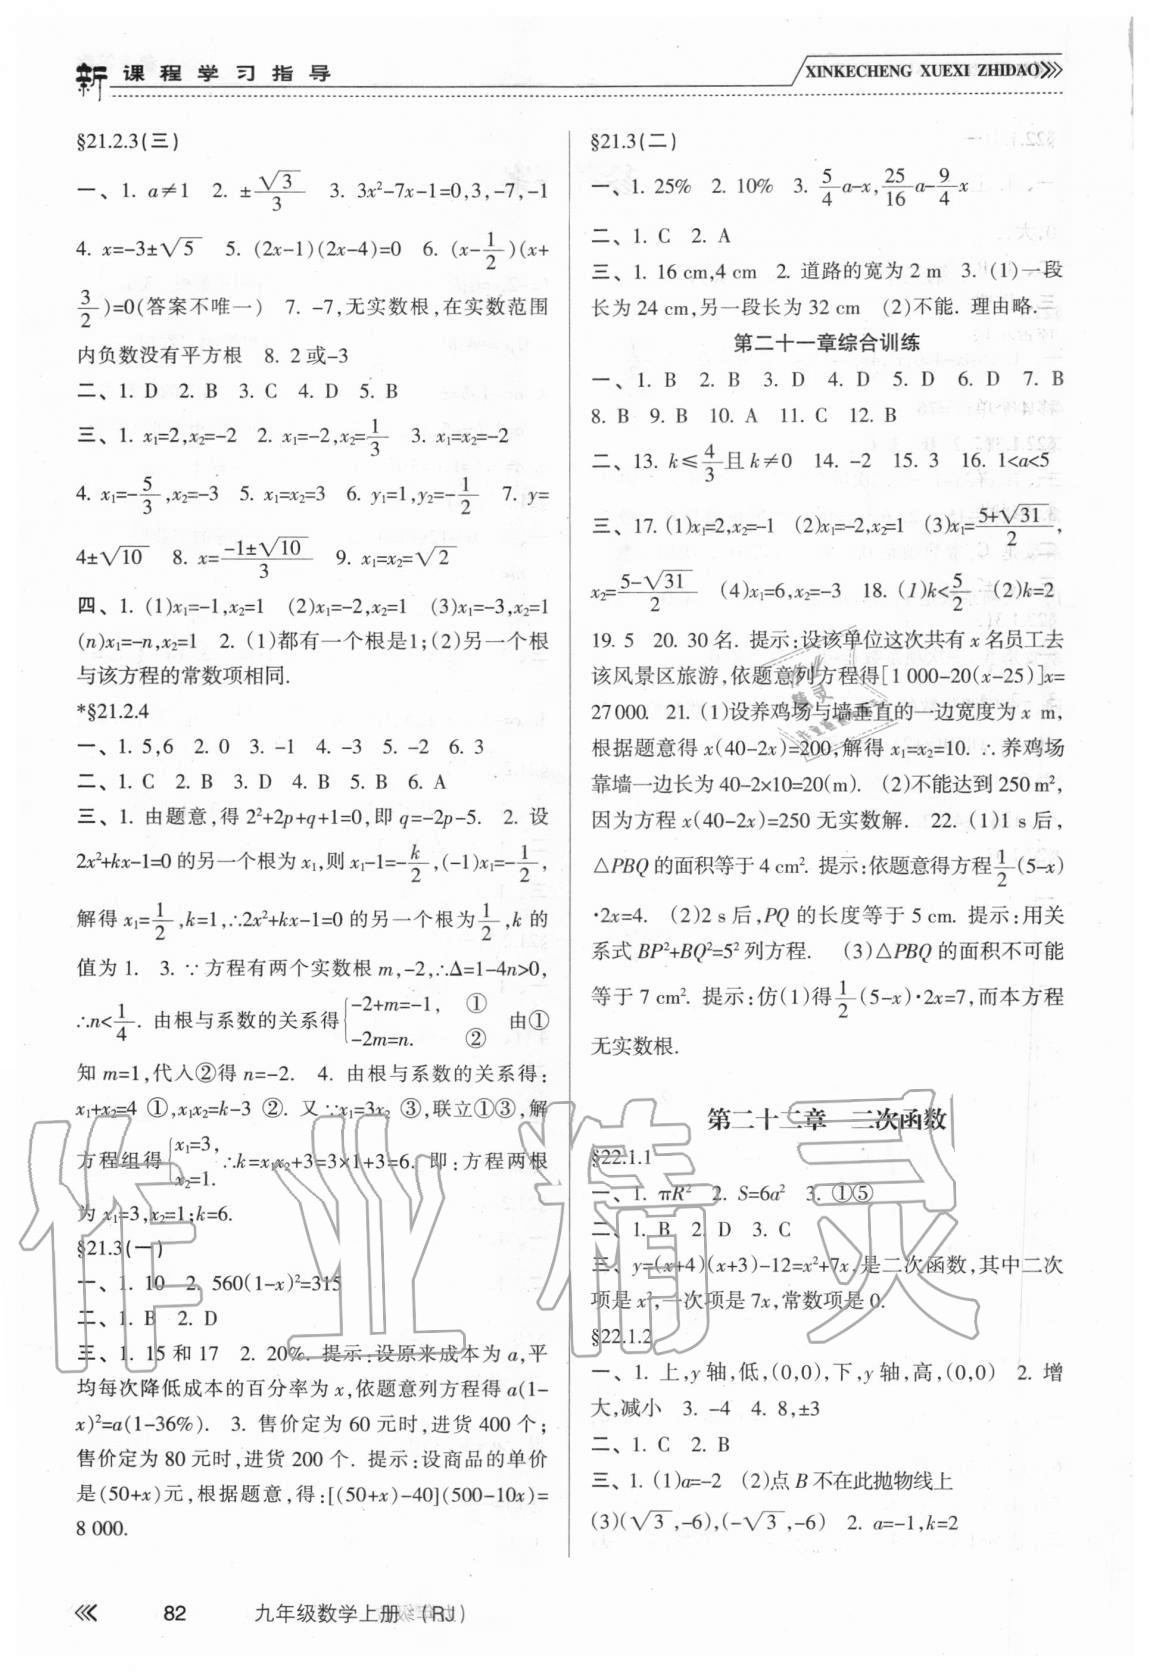 新课程学习指导
XINKECHENG XUEXI ZHIDAO
§21.2.3(三)
一、1. a≠1 2. ±√3/3 3. 3x²-7x-1=0,3,-7,-1
4. x=-3±√5 5. (2x-1)(2x-4)=0 6. (x-1/2)(x+
3/2)=0(答案不唯一) 7. -7,无实数根,在实数范围
内负数没有平方根 8. 2或-3
二、1. D 2. B 3. C 4. D 5. B
三、1. x₁=2,x₂=-2 2. x₁=-2,x₂=1/3 3. x₁=x₂=-2
4. x₁=-5/3,x₂=-3 5. x₁=x₂=3 6. y₁=1,y₂=-1/2 7. y=
4±√10 8. x=(-1±√10)/3 9. x₁=x₂=√2
四、1. (1)x₁=-1,x₂=1 (2)x₁=-2,x₂=1 (3)x₁=-3,x₂=1
(n)x₁=-n,x₂=1 2. (1)都有一个根是1;(2)另一个根
与该方程的常数项相同.
*§21.2.4
一、1. 5,6 2. 0 3. -1 4. -3 5. -2 6. 3
二、1. C 2. B 3. D 4. B 5. B 6. A
三、1. 由题意,得2²+2p+q+1=0,即q=-2p-5. 2. 设
2x²+kx-1=0的另一个根为x₁,则x₁-1=-k/2,(-1)x₁=-1/2,
解得x₁=1/2,k=1,∴2x²+kx-1=0的另一个根为1/2,k的
值为1. 3. ∵方程有两个实数根m,-2,∴Δ=1-4n>0,
∴n<1/4. 由根与系数的关系得{-2+m=-1, ① -2m=n. ② 由①
知m=1,代入②得n=-2. 4. 由根与系数的关系得:
x₁+x₂=4 ①,x₁x₂=k-3 ②. 又∵x₁=3x₂ ③,联立①③,解
方程组得{x₁=3, x₂=1. ∴k=x₁x₂+3=3×1+3=6. 即:方程两根
为x₁=3,x₂=1;k=6.
§21.3(一)
一、1. 10 2. 560(1-x)²=315
二、1. B 2. D
三、1. 15和17 2. 20%. 提示:设原来成本为a,平
均每次降低成本的百分率为x,依题意列方程得a(1-
x)²=a(1-36%). 3. 售价定为60元时,进货400个;
售价定为80元时,进货200个. 提示:设商品的单价
是(50+x)元,根据题意,得:[(50+x)-40](500-10x)=
8 000.
§21.3(二)
一、1. 25% 2. 10% 3. 5/4a-x,25/16a-9/4x
二、1. C 2. A
三、1. 16 cm,4 cm 2. 道路的宽为2 m 3. (1)一段
长为24 cm,另一段长为32 cm (2)不能. 理由略.
第二十一章综合训练
一、1. B 2. B 3. D 4. D 5. D 6. D 7. B
8. B 9. B 10. A 11. C 12. B
二、13. k≤4/3且k≠0 14. -2 15. 3 16. 1<a<5
三、17. (1)x₁=2,x₂=-1 (2)x₁=-2,x₂=1 (3)x₁=(5+√31)/2,
x₂=(5-√31)/2 (4)x₁=6,x₂=-3 18. (1)k<5/2 (2)k=2
19. 5 20. 30名. 提示:设该单位这次共有x名员工去
该风景区旅游,依题意列方程得[1 000-20(x-25)]x=
27 000. 21. (1)设养鸡场与墙垂直的一边宽度为x m,
根据题意得x(40-2x)=200,解得x₁=x₂=10. ∴养鸡场
靠墙一边长为40-2×10=20(m). (2)不能达到250 m²,
因为方程x(40-2x)=250无实数解. 22. (1)1 s后,
△PBQ的面积等于4 cm². 提示:依题意得方程1/2(5-x)
·2x=4. (2)2 s后,PQ的长度等于5 cm. 提示:用关
系式BP²+BQ²=5²列方程. (3)△PBQ的面积不可能
等于7 cm². 提示:仿(1)得1/2(5-x)·2x=7,而本方程
无实数根.
第二十二章 二次函数
§22.1.1
一、1. πR² 2. S=6a² 3. ①⑤
二、1. B 2. D 3. C
三、y=(x+4)(x+3)-12=x²+7x,是二次函数,其中二次
项是x²,一次项是7x,常数项是0.
§22.1.2
一、1. 上,y轴,低,(0,0),下,y轴,高,(0,0) 2. 增
大,减小 3. -4 4. 8,±3
二、1. C 2. B
三、1. (1)a=-2 (2)点B不在此抛物线上
(3)(√3,-6),(-√3,-6) 2. a=-1,k=2
82 九年级数学上册·(RJ)
作业精灵